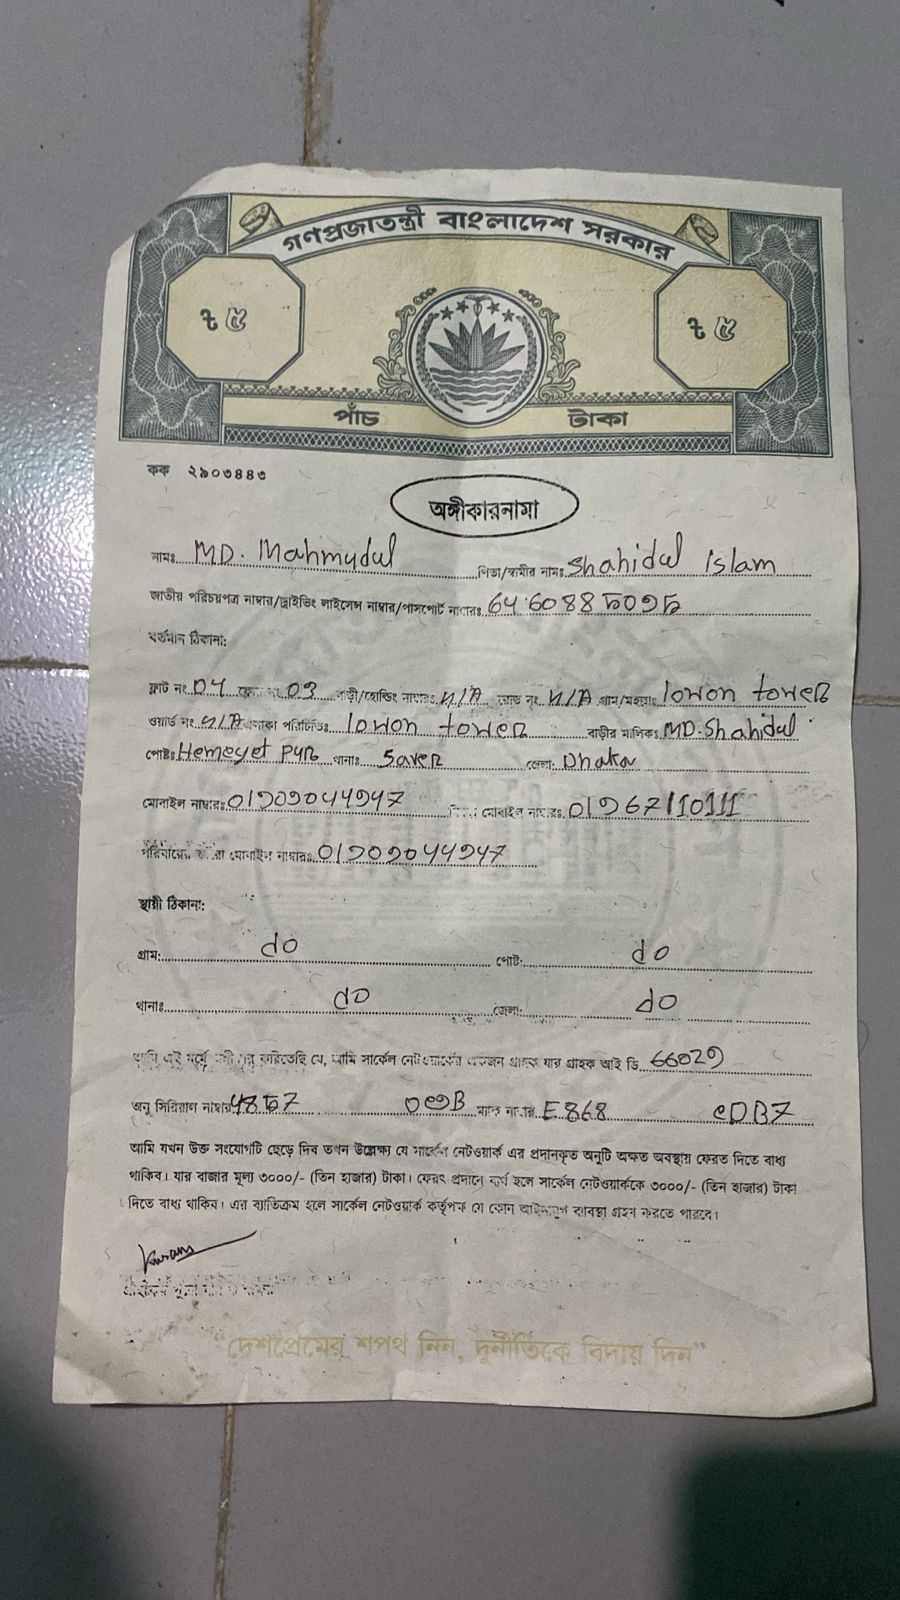 গণপ্রজাতন্ত্রী বাংলাদেশ সরকার
৳ ৫ ৳ ৫
পাঁচ টাকা
কক ২৯০৩৪৪৩
অঙ্গীকারনামা
নামঃ MD. Mahmudul পিতা/স্বামীর নামঃ Shahidul Islam
জাতীয় পরিচয়পত্র নাম্বার/ড্রাইভিং লাইসেন্স নাম্বার/পাসপোর্ট নাম্বারঃ
বর্তমান ঠিকানা:
ফ্লাট নং 04 03 বাড়ী/হোল্ডিং নাম্বারঃ N/A রোড নং N/A গ্রাম/মহল্লাঃ lowon tower
ওয়ার্ড নং N/A এলাকা পরিচিতিঃ lowon tower বাড়ীর মালিকঃ MD. Shahidul
পোষ্টঃ Hemeyet pur থানাঃ Saver জেলা: Dhaka
মোবাইল নাম্বারঃ মোবাইল নাম্বারঃ
পরিবারের মোবাইল নাম্বারঃ
স্থায়ী ঠিকানা:
গ্রাম: do পোষ্ট: do
থানাঃ do জেলা: do
আমি এই মর্মে করিতেছি যে, আমি সার্কেল নেটওয়ার্কের একজন গ্রাহক যার গ্রাহক আই ডি 66029
অনু সিরিয়াল নাম্বার ম্যাক নাম্বার E868
আমি যখন উক্ত সংযোগটি ছেড়ে দিব তখন উল্লেখ্য যে সার্কেল নেটওয়ার্ক এর প্রদানকৃত অনুটি অক্ষত অবস্থায় ফেরত দিতে বাধ্য
থাকিব। যার বাজার মূল্য ৩০০০/- (তিন হাজার) টাকা। ফেরৎ প্রদানে ব্যর্থ হলে সার্কেল নেটওয়ার্ককে ৩০০০/- (তিন হাজার) টাকা
দিতে বাধ্য থাকিব। এর ব্যতিক্রম হলে সার্কেল নেটওয়ার্ক কর্তৃপক্ষ যে কোন আইনানুগ ব্যবস্থা গ্রহন করতে পারবে।
"দেশপ্রেমের শপথ নিন, দুর্নীতিকে বিদায় দিন"